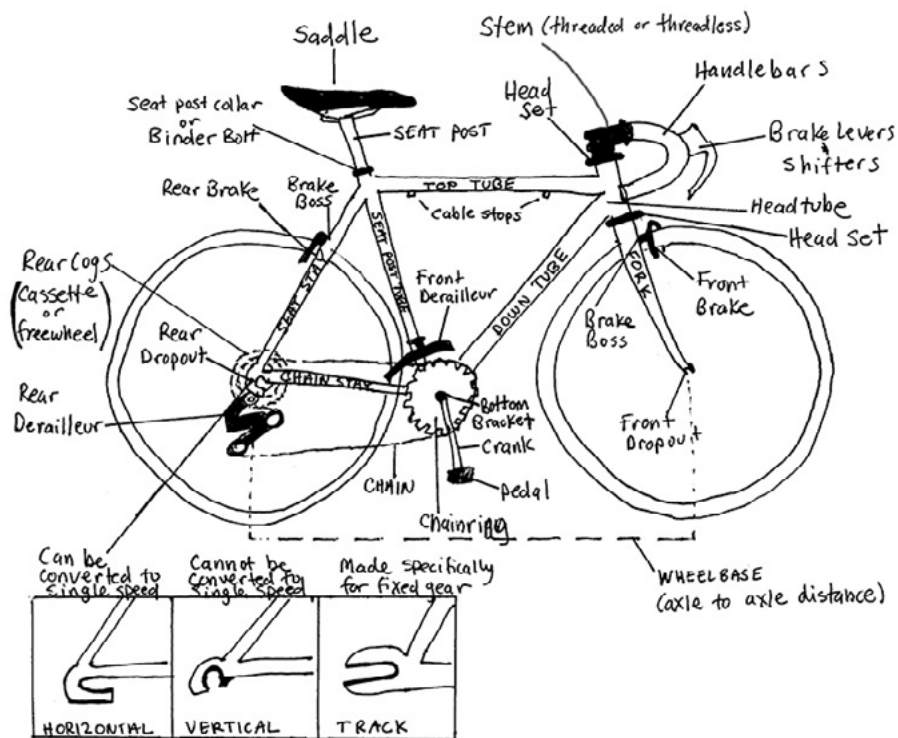 Saddle
Stem (threaded or threadless)
Handlebars
Head
Set
Seat post collar
or
Binder Bolt
SEAT POST
Brake Levers
&
Shifters
Rear Brake
Brake
Boss
TOP TUBE
Cable stops
Headtube
Head Set
SEAT POST TUBE
Rear Cogs
(Cassette
or
freewheel)
SEAT STAY
Front
Derailleur
DOWN TUBE
FORK
Front
Brake
Brake
Boss
Rear
Dropout
CHAIN STAY
Rear
Derailleur
Bottom
Bracket
Crank
Front
Dropout
CHAIN
Pedal
Chainring
WHEELBASE
(axle to axle distance)
Can be
converted to
Single speed
Cannot be
converted to
Single speed
Made specifically
for fixed gear
HORIZONTAL
VERTICAL
TRACK